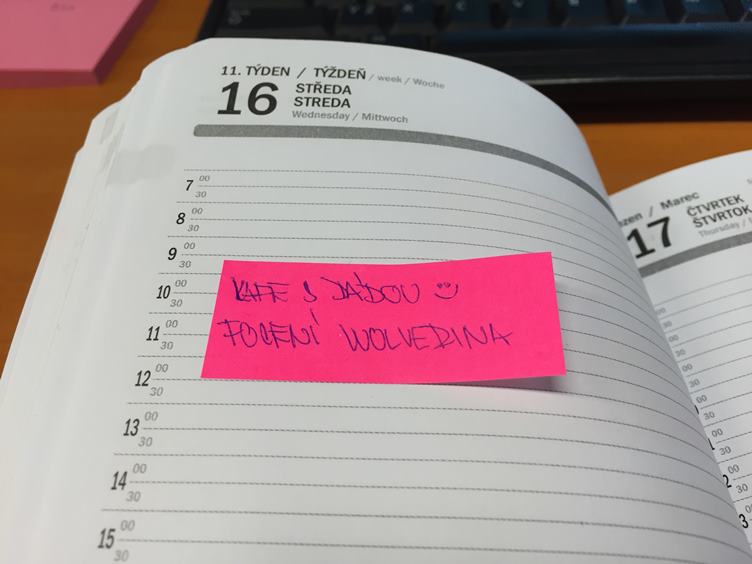 11. TÝDEN / TÝŽDEŇ / week / Woche
16 STŘEDA
STREDA
Wednesday / Mittwoch
7 00
30
8 00
30
9 00
30
KAFE S JÁĎOU
10 00
30
FOCENÍ WOLVERINA
11 00
30
12 00
30
13 00
30
14 00
30
15 00
30
/ Marec
17 ČTVRTEK
ŠTVRTOK
Thursday /